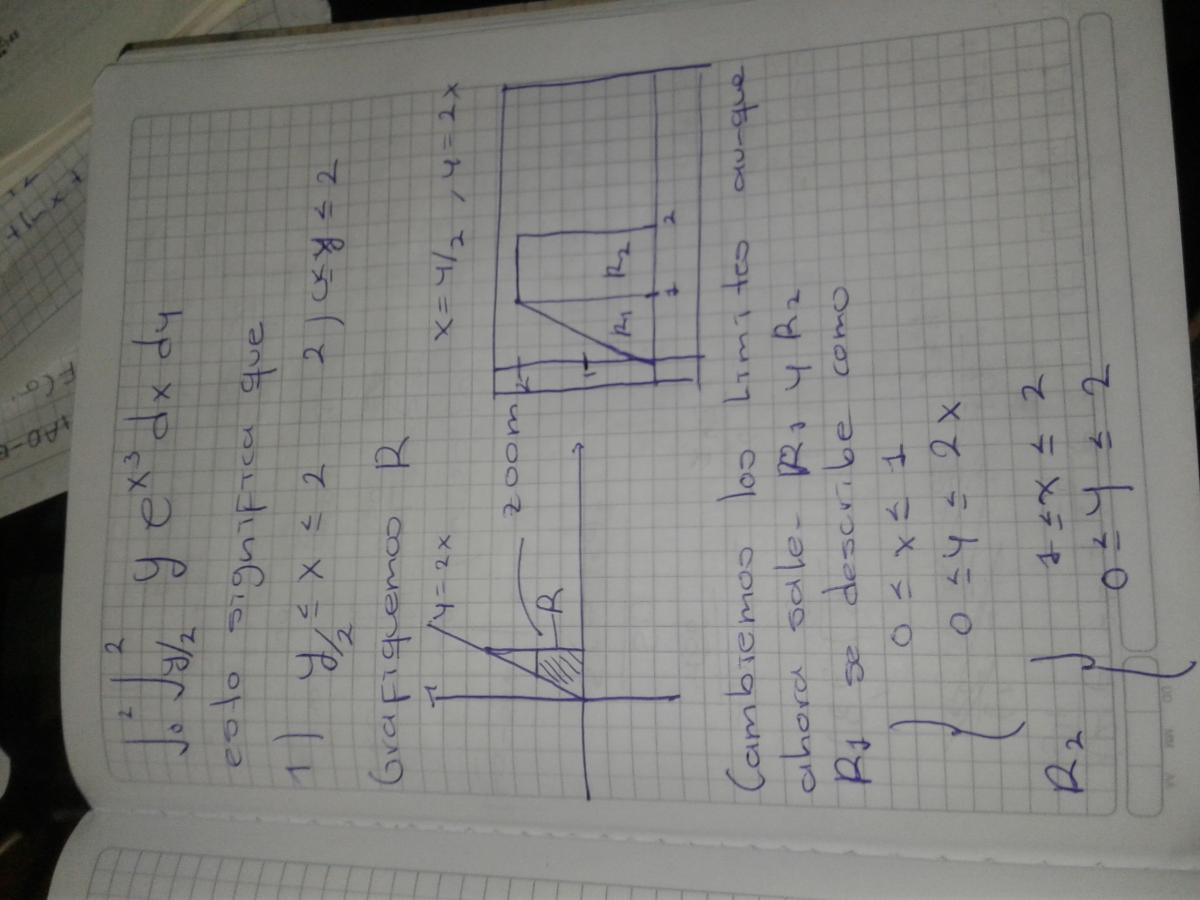 ∫₀² ∫_{y/2}² y e^{x³} dx dy
esto significa que
1) y/2 ≤ x ≤ 2 2) 0 ≤ y ≤ 2
Grafiquemos R x = y/2 , y = 2x
y = 2x
R
zoom
2
1
R1 R2
1 2
Cambiemos los limites aunque
ahora salen R1 y R2
R1 se describe como
{ 0 ≤ x ≤ 1
0 ≤ y ≤ 2x
R2 { 1 ≤ x ≤ 2
0 ≤ y ≤ 2